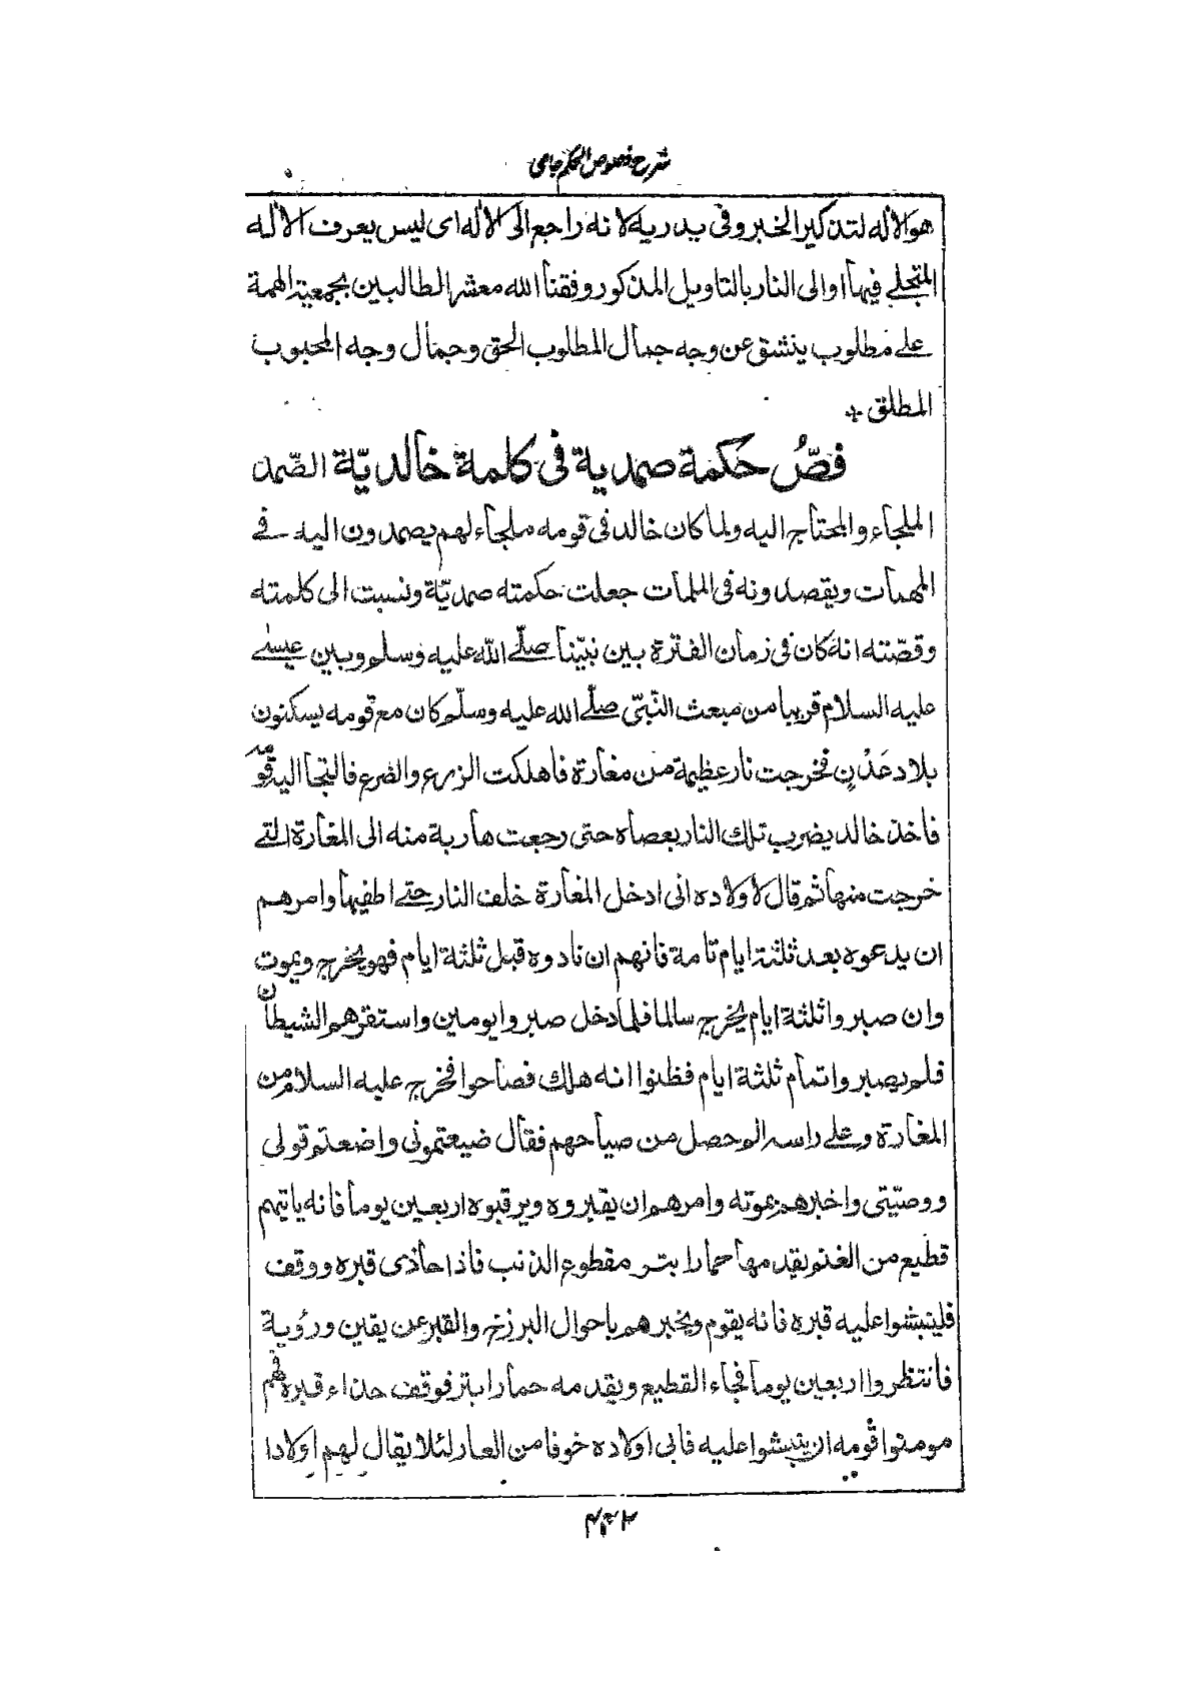 شرح فصوص الحكم جامی
هو الاله لتذكير الخبر وفى يدريه لانه راجع الى الاله اى ليس يعرف الاله
المتجلى فيها او الى النار بالتاويل المذكور وفقنا الله معشر الطالبين بجمعية الهمة
على مطلوب ينشق عن وجه جمال المطلوب الحق وجمال وجه المحبوب
المطلق +
فصُّ حكمة صمدية فى كلمة خالديّة الصّمد
الملجاء والمحتاج اليه ولما كان خالد فى قومه ملجاء لهم يصمدون اليه فى
المهمات ويقصدونه فى الملمات جعلت حكمته صمديّة ونسبت الى كلمته
وقصّته انه كان فى زمان الفترة بين نبيّنا صلّى الله عليه وسلم وبين عيسٰى
عليه السلام قريبا من مبعث النّبىّ صلّى الله عليه وسلّم كان مع قومه يسكنون
بلاد عَدْنٍ فخرجت نار عظيمة من مغارة فاهلكت الزرع والضرع فالتجا اليه قومه
فاخذ خالد يضرب تلك النار بعصاه حتى رجعت هاربة منه الى المغارة التى
خرجت منها ثم قال لاولاده انى ادخل المغارة خلف النار حتى اطفيها وامرهم
ان يدعوه بعد ثلثة ايام تامة فانهم ان نادوه قبل ثلثة ايام فهو يخرج ويموت
وان صبروا ثلثة ايام يخرج سالما فلما دخل صبروا يومين واستفزهم الشيطان
فلم يصبروا تمام ثلثة ايام فظنوا انه هلك فصاحوا فخرج عليه السلام من
المغارة وعلى راسه الم حصل من صياحهم فقال ضيعتمونى واضعتم قولى
ووصيّتى واخبرهم بموته وامرهم ان يقبروه ويرقبوه اربعين يوما فانه ياتيهم
قطيع من الغنم يقدمها حمار ابتر مقطوع الذنب فاذا حاذى قبره ووقف
فلينبشوا عليه قبره فانه يقوم ويخبرهم باحوال البرزخ والقبر عن يقين ورؤية
فانتظروا اربعين يوما فجاء القطيع ويقدمه حمار ابتر فوقف حذاء قبره فهم
مومنوا قومه ان ينبشوا عليه فابى اولاده خوفا من العار لئلا يقال لهم اولادا
۴۳۲